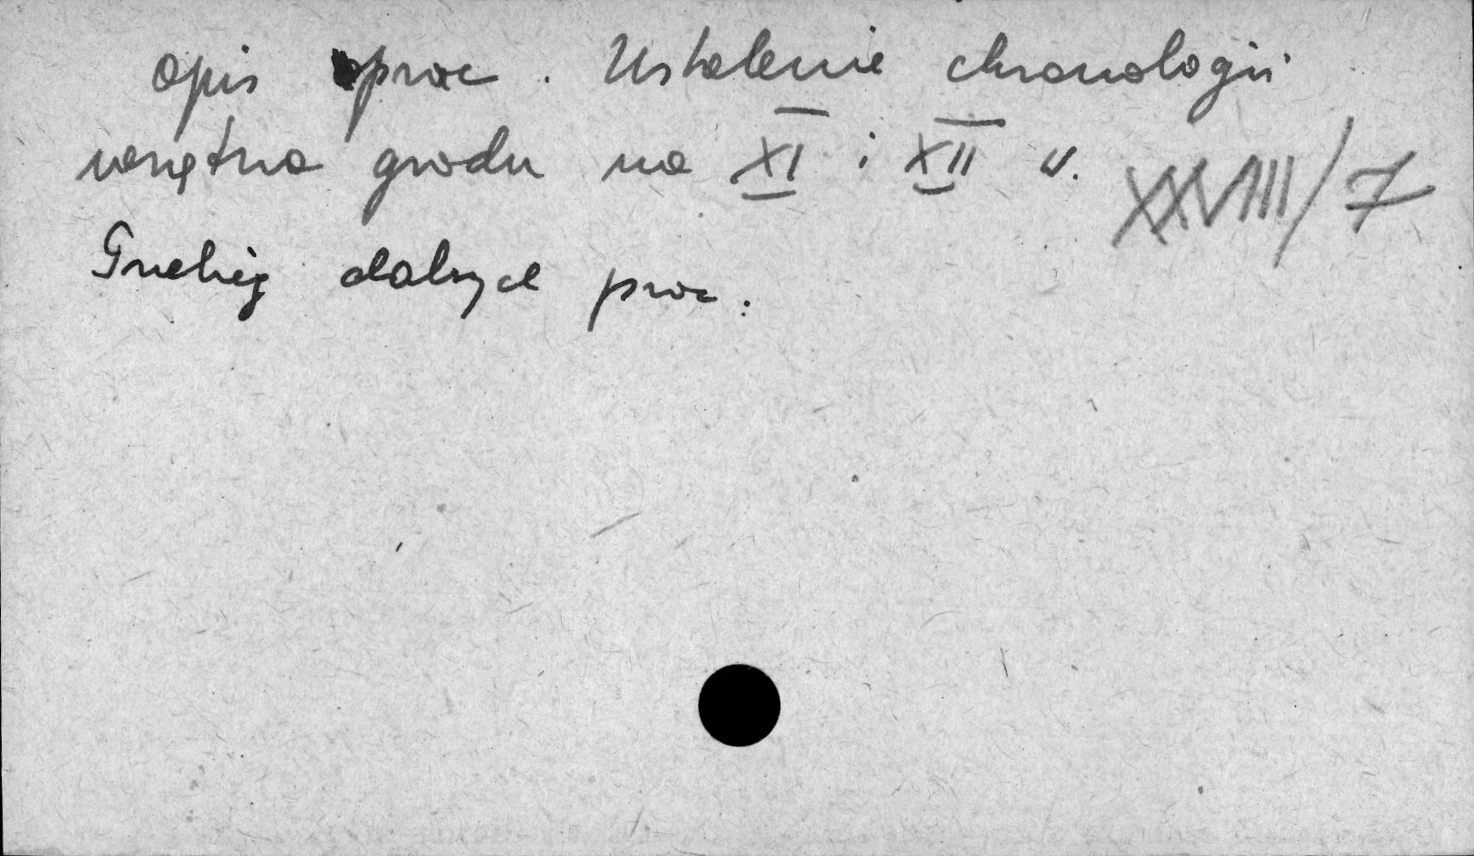 opis prac. Ustalenie chronologii
wnętrza grodu na XI i XII w.
XXVIII/7
Przebieg dalszych prac.